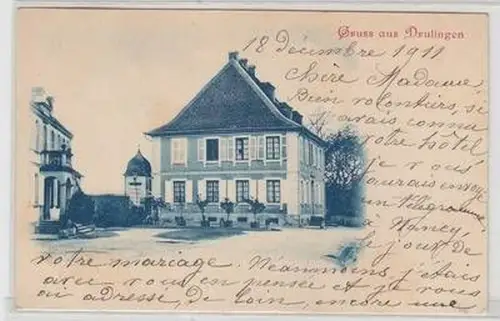 Gruss aus Drulingen
18 décembre 1911
Chère Madame,
Bien volontiers, si
j'avais connu
votre hôtel
je vous
aurais envoyé
un télégramme
à Nancy,
le jour de
votre mariage. Néanmoins j'étais
avec vous en pensée et je vous
ai adressé, de loin, encore une